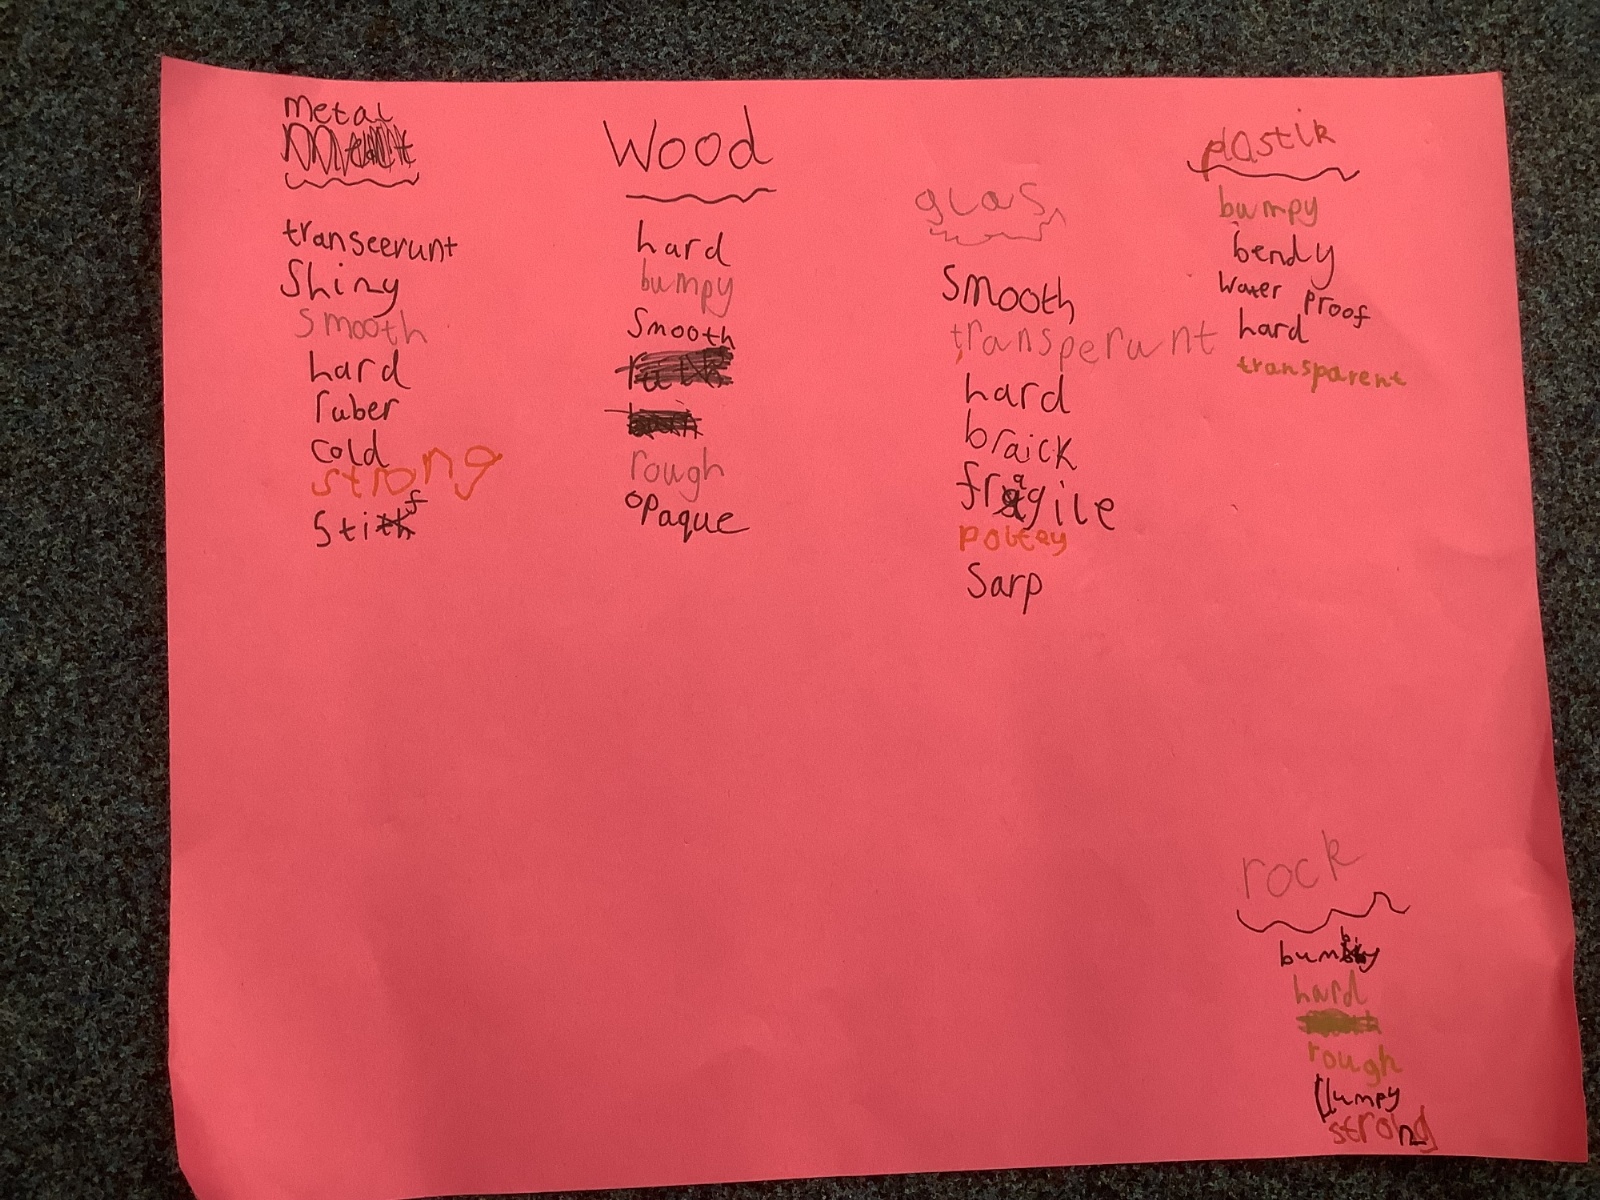 metal
transeerunt
Shiny
smooth
hard
ruber
cold
strong
stif
Wood
hard
bumpy
Smooth
rough
opaque
glas
Smooth
transperunt
hard
braick
fragile
Sarp
plastik
bumpy
bendy
water proof
hard
transparent
rock
hard
rough
lumpy
strong